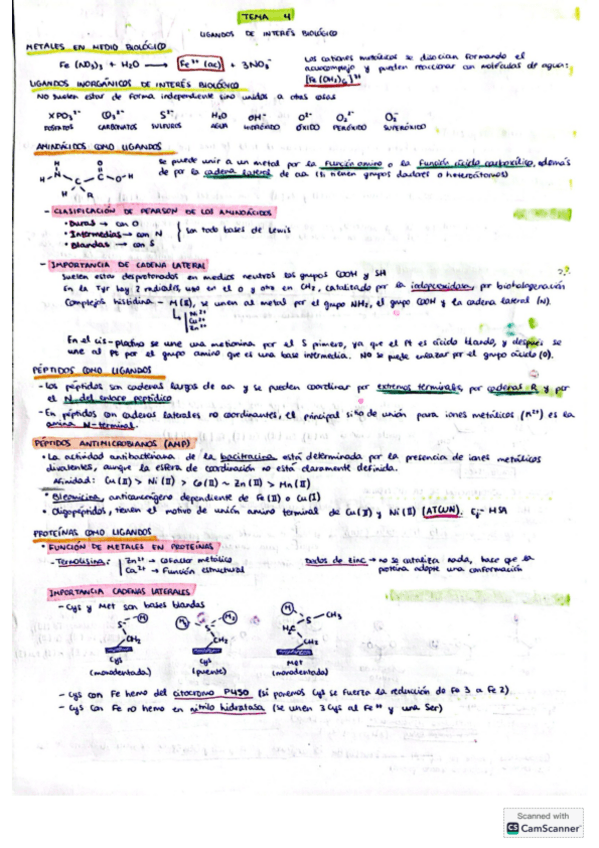 TEMA 4
LIGANDOS DE INTERÉS BIOLÓGICO
METALES EN MEDIO BIOLÓGICO
Fe (NO3)3 + H2O → Fe3+ (ac) + 3NO3-
Los cationes metálicos se disocian formando el
acuocomplejo y pueden reaccionar con moléculas de agua:
[Fe (OH2)6]3+
LIGANDOS INORGÁNICOS DE INTERÉS BIOLÓGICO
No suelen estar de forma independiente sino unidos a otras cosas
XPO3 2- CO3 2- S2- H2O OH- O2- O2 2- O2-
FOSFATOS CARBONATOS SULFUROS AGUA HIDRÓXIDO ÓXIDO PERÓXIDO SUPERÓXIDO
AMINOÁCIDOS COMO LIGANDOS
H O
H-N C C O-H
H R
Se puede unir a un metal por la función amino o la función ácido carboxílico, además
de por la cadena lateral de aa (si tienen grupos dadores o heteroátomos)
- CLASIFICACIÓN DE PEARSON DE LOS AMINOÁCIDOS
• Duras → con O
• Intermedias → con N } son todo bases de Lewis
• Blandas → con S
- IMPORTANCIA DE CADENA LATERAL
Suelen estar desprotonados en medios neutros los grupos COOH y SH
En la Tyr hay 2 radicales, uno en el O y otro en CH2, catalizado por la iodoperoxidasa, por biohalogenación
Complejos histidina - M(II), se unen al metal por el grupo NH2, el grupo COOH y la cadena lateral (N).
Ni2+
Cu2+
Zn2+
En el cis-platino se une una metionina por el S primero, ya que el Pt es ácido blando, y después se
une al Pt por el grupo amino que es una base intermedia. No se puede enlazar por el grupo ácido (O).
PÉPTIDOS COMO LIGANDOS
- Los péptidos son cadenas largas de aa y se pueden coordinar por extremos terminales, por cadenas R y por
el N del enlace peptídico
- En péptidos con cadenas laterales no coordinantes, el principal sitio de unión para iones metálicos (M2+) es la
amina N-terminal.
PÉPTIDOS ANTIMICROBIANOS (AMP)
• La actividad antibacteriana de la bacitracina está determinada por la presencia de iones metálicos
divalentes, aunque la esfera de coordinación no está claramente definida.
Afinidad: Cu(II) > Ni(II) > Co(II) ~ Zn(II) > Mn(II)
• Bleomicina, anticancerígeno dependiente de Fe(II) o Cu(I)
• Oligopéptidos, tienen el motivo de unión amino terminal de Cu(II) y Ni(II) (ATCUN). Ej- HSA
PROTEÍNAS COMO LIGANDOS
- FUNCIÓN DE METALES EN PROTEÍNAS
- Termolisina: Zn2+ → Cofactor metálico
Ca2+ → Función estructural
Dedos de zinc → no se cataliza nada, hace que la
proteína adopte una conformación
IMPORTANCIA CADENAS LATERALES
- Cys y Met son bases blandas
M M M M
S S S CH3
CH2 CH2 H2C CH2
Cys Cys Met
(monodentada) (puente) (monodentada)
- Cys con Fe hemo del citocromo P450 (si ponemos Cys se fuerza la reducción de Fe 3 a Fe 2).
- Cys con Fe no hemo en nitrilo hidratasa (se unen 3 Cys al Fe3+ y una Ser)
Scanned with
CS CamScanner